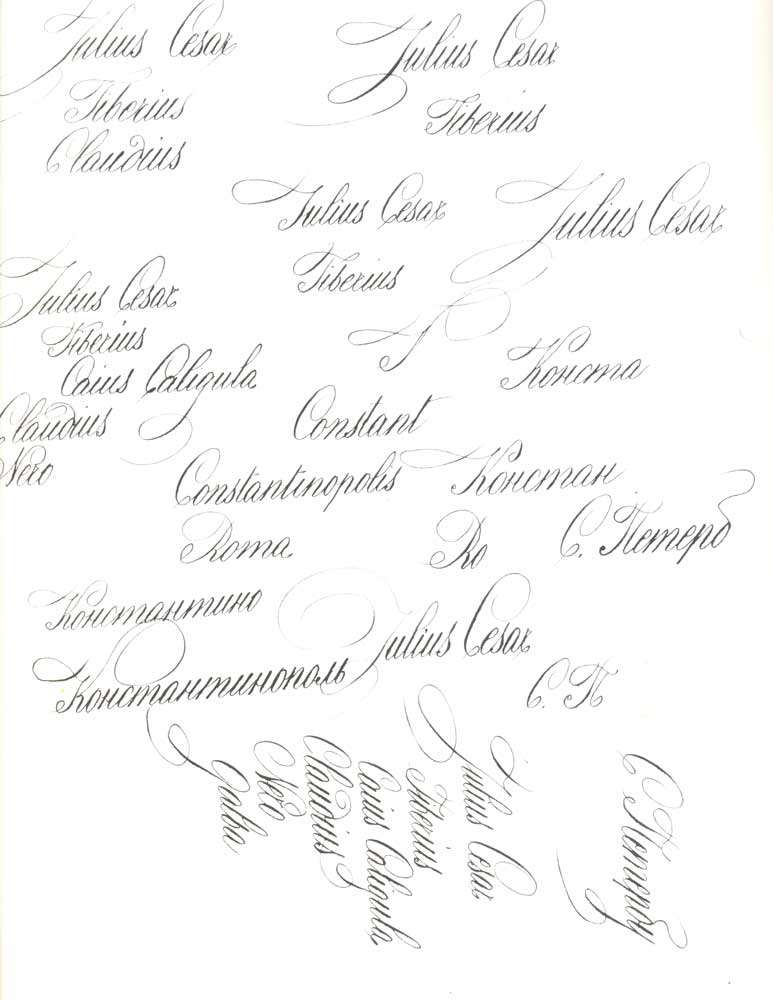 Julius Cesar
Julius Cesar
Tiberius
Tiberius
Claudius
Julius Cesar
Julius Cesar
Tiberius
Julius Cesar
Tiberius
J
Caius Caligula
Конста
Claudius
Constant
Nero
Constantinopolis
Констан
Roma
Ro
С. Петерб
Константино
Julius Cesar
Константинополь
С. П
Julius Cesar
Tiberius
Caius Caligula
Claudius
Nero
Galba
С. Петербу